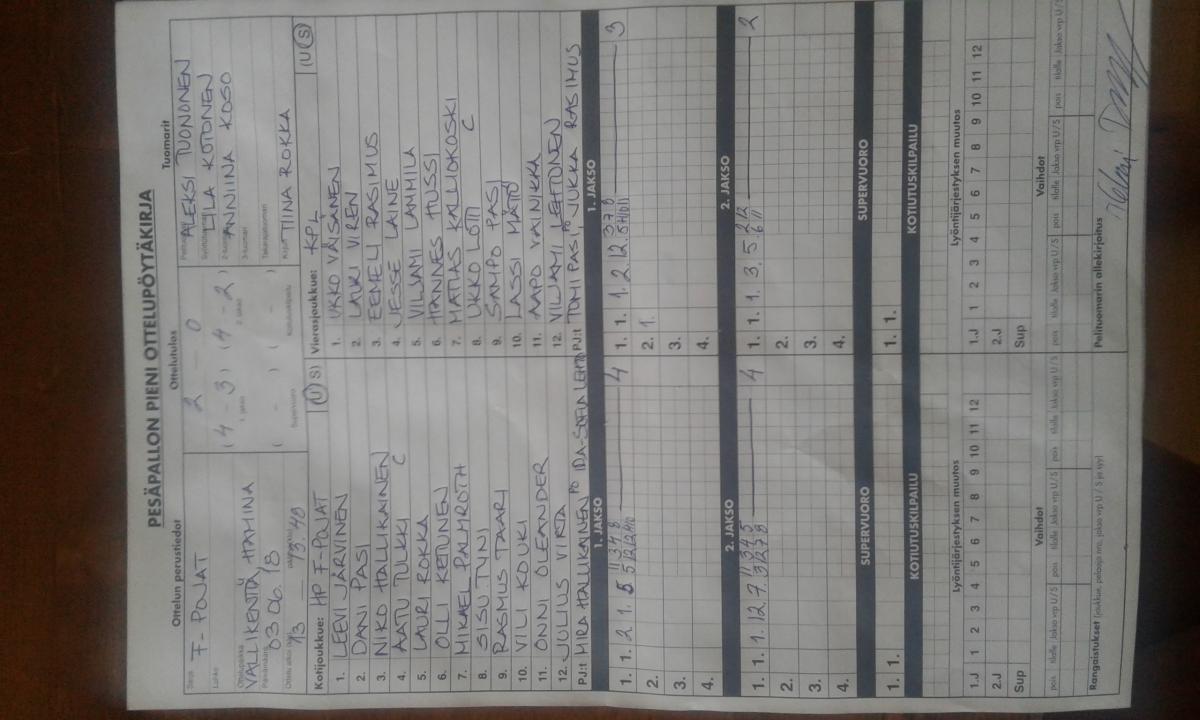 PESÄPALLON PIENI OTTELUPÖYTÄKIRJA
Ottelun perustiedot
Ottelutulos
Tuomarit
Sarja F-POJAT
Lohko
Ottelupaikka VALLIKENTTÄ, HAMINA
Päivämäärä 03.06.18
13 13.40
2 - 0
(4 - 3) (4 - 2)
1. jakso 2. jakso
( - ) ( - )
Supervuoro Kotiutuskilpailu
ALEKSI TUONONEN
KOTONEN
ANNIINA KOSO
Takarajatuomari
TIINA ROKKA
Kotijoukkue: HP F-POJAT (U/S)
1. LEEVI JÄRVINEN
2. DANI PASI
3. NIKO HALLIKAINEN
4. AATU TULKKI C
5. LAURI ROKKA
6. OLLI KETUNEN
7. MIKAEL PALMROTH
8. SISU TYNI
9. RASMUS TAARI
10. VILI KOUKI
11. ONNI OLEANDER
12. JULIUS VIRTA
PJ:t MIRA HALLIKAINEN PO IDA-SOFIA LEHTO
Vierasjoukkue: KPL (U/S)
1. UKKO VÄISÄNEN
2. LAURI VIREN
3. EEMELI RASIMUS
4. JESSE LAINE
5. VILJAMI LAMMILA
6. HANNES HUSSI
7. MATIAS KALLIOKOSKI
8. UKKO LÖTT C
9. SAMPO PASI
10. LASSI MÄTTÖ
11. AAPO VAINIKKA
12. VILJAMI LEHTONEN
PJ:t TOMI PASI, PO JUKKA RASIMUS
1. JAKSO
1. 1. 2. 1. 4
2.
3.
4.
1. JAKSO
1. 1. 1. 2. 12. 3
2. 1.
3.
4.
2. JAKSO
1. 1. 1. 12. 7. 4
2.
3.
4.
2. JAKSO
1. 1. 1. 3. 5 2
2.
3.
4.
SUPERVUORO
1. 1.
SUPERVUORO
1. 1.
KOTIUTUSKILPAILU
KOTIUTUSKILPAILU
Lyöntijärjestyksen muutos
1.J 1 2 3 4 5 6 7 8 9 10 11 12
2.J
Sup
Lyöntijärjestyksen muutos
1.J 1 2 3 4 5 6 7 8 9 10 11 12
2.J
Sup
Vaihdot
pois tilalle Jakso vrp U/S pois tilalle Jakso vrp U/S pois tilalle Jakso vrp U/S
Vaihdot
pois tilalle Jakso vrp U/S pois tilalle Jakso vrp U/S pois tilalle Jakso vrp U/S
Rangaistukset (joukkue, pelaaja nro, jakso vrp U / S ja syy)
Pelituomarin allekirjoitus